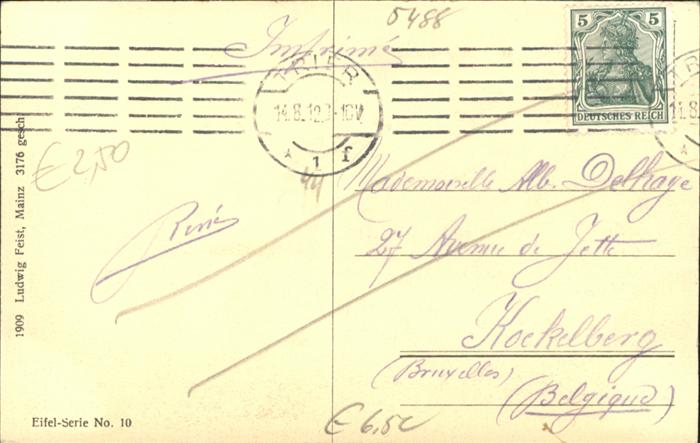 5488
Imprimé
5 5
DEUTSCHES REICH
TRIER
14.8.12
1 f
€ 2,50
44
René
Mademoiselle Alb. Delhaye
27 Avenue de Jette
Koekelberg
(Bruxelles)
(Belgique)
€ 6,50
1909 Ludwig Feist, Mainz 3176 gesch
Eifel-Serie No. 10